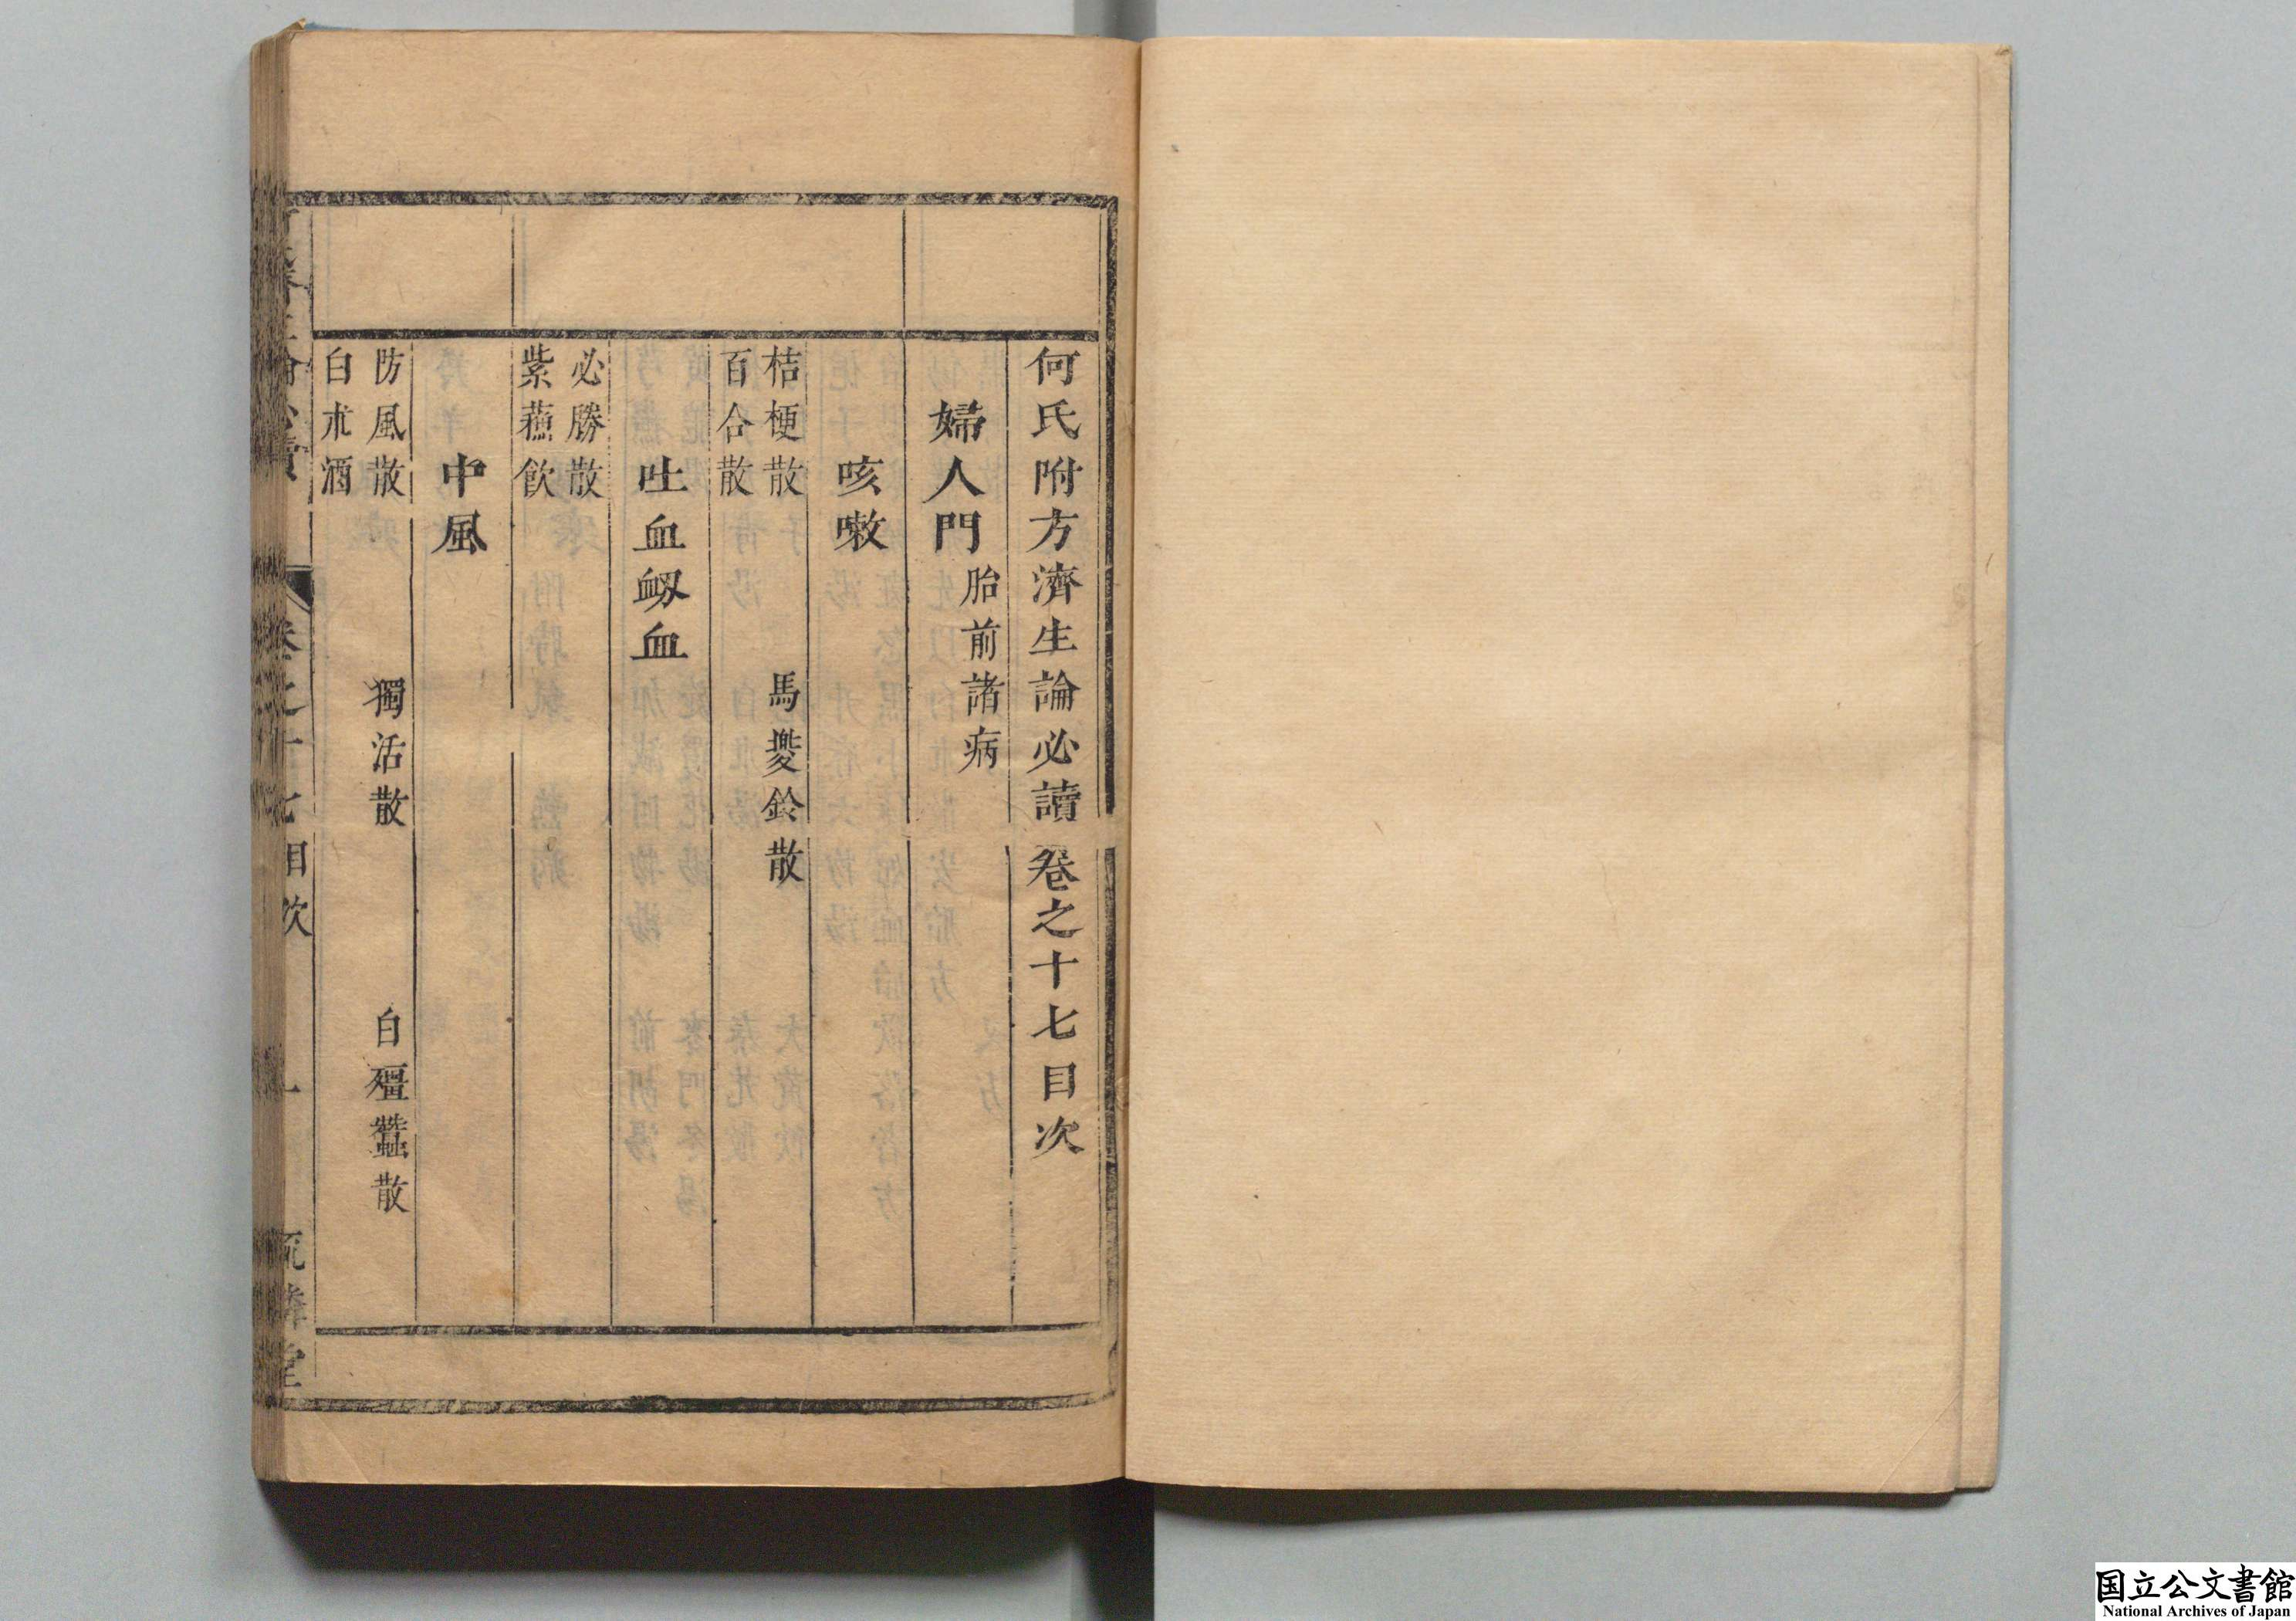 何氏附方濟生論必讀卷之十七目次
婦人門 胎前諸病
咳嗽
桔梗散 馬兜鈴散
百合散
吐血衄血
必勝散
紫蘓飲
中風
防風散 獨活散 白殭蠶散
白朮酒
卷之十七目次
国立公文書館
National Archives of Japan